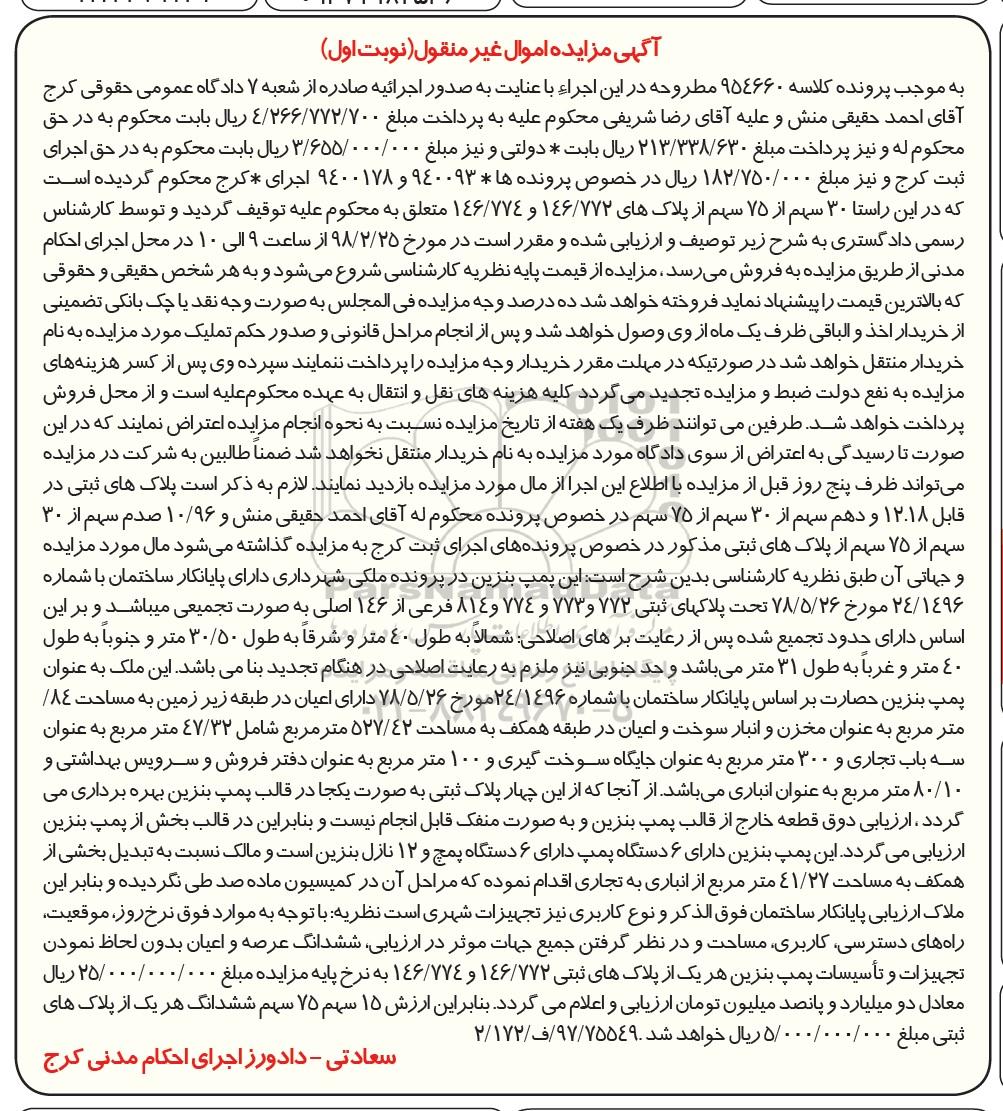 آگهی مزایده اموال غیر منقول(نوبت اول)
به موجب پرونده کلاسه ۹۵٤۶۶۰ مطروحه در این اجراء با عنایت به صدور اجرائیه صادره از شعبه ۷ دادگاه عمومی حقوقی کرج
آقای احمد حقیقی منش و علیه آقای رضا شریفی محکوم علیه به پرداخت مبلغ ٤/۲۶۶/۷۷۲/۷۰۰ ریال بابت محکوم به در حق
محکوم له و نیز پرداخت مبلغ ۲۱۳/۳۳۸/۶۳۰ ریال بابت * دولتی و نیز مبلغ ۳/۶۵۵/۰۰۰/۰۰۰ ریال بابت محکوم به در حق اجرای
ثبت کرج و نیز مبلغ ۱۸۲/۷۵۰/۰۰۰ ریال در خصوص پرونده ها * ۹٤۰۰۹۳ و ۹٤۰۰۱۷۸ اجرای *کرج محکوم گردیده است
که در این راستا ۳۰ سهم از ۷۵ سهم از پلاک های ۱٤۶/۷۷۲ و ۱٤۶/۷۷٤ متعلق به محکوم علیه توقیف گردید و توسط کارشناس
رسمی دادگستری به شرح زیر توصیف و ارزیابی شده و مقرر است در مورخ ۹۸/۲/۲۵ از ساعت ۹ الی ۱۰ در محل اجرای احکام
مدنی از طریق مزایده به فروش می‌رسد ، مزایده از قیمت پایه نظریه کارشناسی شروع می‌شود و به هر شخص حقیقی و حقوقی
که بالاترین قیمت را پیشنهاد نماید فروخته خواهد شد ده درصد وجه مزایده فی المجلس به صورت وجه نقد یا چک بانکی تضمینی
از خریدار اخذ و الباقی ظرف یک ماه از وی وصول خواهد شد و پس از انجام مراحل قانونی و صدور حکم تملیک مورد مزایده به نام
خریدار منتقل خواهد شد در صورتیکه در مهلت مقرر خریدار وجه مزایده را پرداخت ننمایند سپرده وی پس از کسر هزینه‌های
مزایده به نفع دولت ضبط و مزایده تجدید می گردد کلیه هزینه های نقل و انتقال به عهده محکوم‌علیه است و از محل فروش
پرداخت خواهد شد. طرفین می توانند ظرف یک هفته از تاریخ مزایده نسبت به نحوه انجام مزایده اعتراض نمایند که در این
صورت تا رسیدگی به اعتراض از سوی دادگاه مورد مزایده به نام خریدار منتقل نخواهد شد ضمناً طالبین به شرکت در مزایده
می‌تواند ظرف پنج روز قبل از مزایده با اطلاع این اجرا از مال مورد مزایده بازدید نمایند. لازم به ذکر است پلاک های ثبتی در
قابل ۱۲.۱۸ و دهم سهم از ۳۰ سهم از ۷۵ سهم در خصوص پرونده محکوم له آقای احمد حقیقی منش و ۱۰/۹۶ صدم سهم از ۳۰
سهم از ۷۵ سهم از پلاک های ثبتی مذکور در خصوص پرونده‌های اجرای ثبت کرج به مزایده گذاشته می‌شود مال مورد مزایده
و جهاتی آن طبق نظریه کارشناسی بدین شرح است: این پمپ بنزین در پرونده ملکی شهرداری دارای پایانکار ساختمان با شماره
۲٤/۱٤۹۶ مورخ ۷۸/۵/۲۶ تحت پلاکهای ثبتی ۷۷۲ و۷۷۳ و ۷۷٤ و۸۱٤ فرعی از ۱٤۶ اصلی به صورت تجمیعی میباشد و بر این
اساس دارای حدود تجمیع شده پس از رعایت بر های اصلاحی: شمالاً به طول ٤۰ متر و شرقاً به طول ۳۰/۵۰ متر و جنوباً به طول
٤۰ متر و غرباً به طول ۳۱ متر می‌باشد و حد جنوبی نیز ملزم به رعایت اصلاحی در هنگام تجدید بنا می باشد. این ملک به عنوان
پمپ بنزین حصارت بر اساس پایانکار ساختمان با شماره ۲٤/۱٤۹۶مورخ ۷۸/۵/۲۶ دارای اعیان در طبقه زیر زمین به مساحت ۸٤/
متر مربع به عنوان مخزن و انبار سوخت و اعیان در طبقه همکف به مساحت ۵۲۷/٤۲ مترمربع شامل ٤۷/۳۲ متر مربع به عنوان
سه باب تجاری و ۳۰۰ متر مربع به عنوان جایگاه سوخت گیری و ۱۰۰ متر مربع به عنوان دفتر فروش و سرویس بهداشتی و
۸۰/۱۰ متر مربع به عنوان انباری می‌باشد. از آنجا که از این چهار پلاک ثبتی به صورت یکجا در قالب پمپ بنزین بهره برداری می
گردد ، ارزیابی دوق قطعه خارج از قالب پمپ بنزین و به صورت منفک قابل انجام نیست و بنابراین در قالب بخش از پمپ بنزین
ارزیابی می گردد. این پمپ بنزین دارای ۶ دستگاه پمپ دارای ۶ دستگاه پمچ و ۱۲ نازل بنزین است و مالک نسبت به تبدیل بخشی از
همکف به مساحت ٤۱/۲۷ متر مربع از انباری به تجاری اقدام نموده که مراحل آن در کمیسیون ماده صد طی نگردیده و بنابر این
ملاک ارزیابی پایانکار ساختمان فوق الذکر و نوع کاربری نیز تجهیزات شهری است نظریه: با توجه به موارد فوق نرخ روز، موقعیت،
راه‌های دسترسی، کاربری، مساحت و در نظر گرفتن جمیع جهات موثر در ارزیابی، ششدانگ عرصه و اعیان بدون لحاظ نمودن
تجهیزات و تأسیسات پمپ بنزین هر یک از پلاک های ثبتی ۱٤۶/۷۷۲ و ۱٤۶/۷۷٤ به نرخ پایه مزایده مبلغ ۲۵/۰۰۰/۰۰۰/۰۰۰ ریال
معادل دو میلیارد و پانصد میلیون تومان ارزیابی و اعلام می گردد. بنابراین ارزش ۱۵ سهم ۷۵ سهم ششدانگ هر یک از پلاک های
ثبتی مبلغ ۵/۰۰۰/۰۰۰/۰۰۰ ریال خواهد شد .۹۷/۷۵۵٤۹/ف/۲/۱۷۲
سعادتی – دادورز اجرای احکام مدنی کرج
ParsNamadData
۰۲۱-۸۸۳٤۹۶۷۰-۵